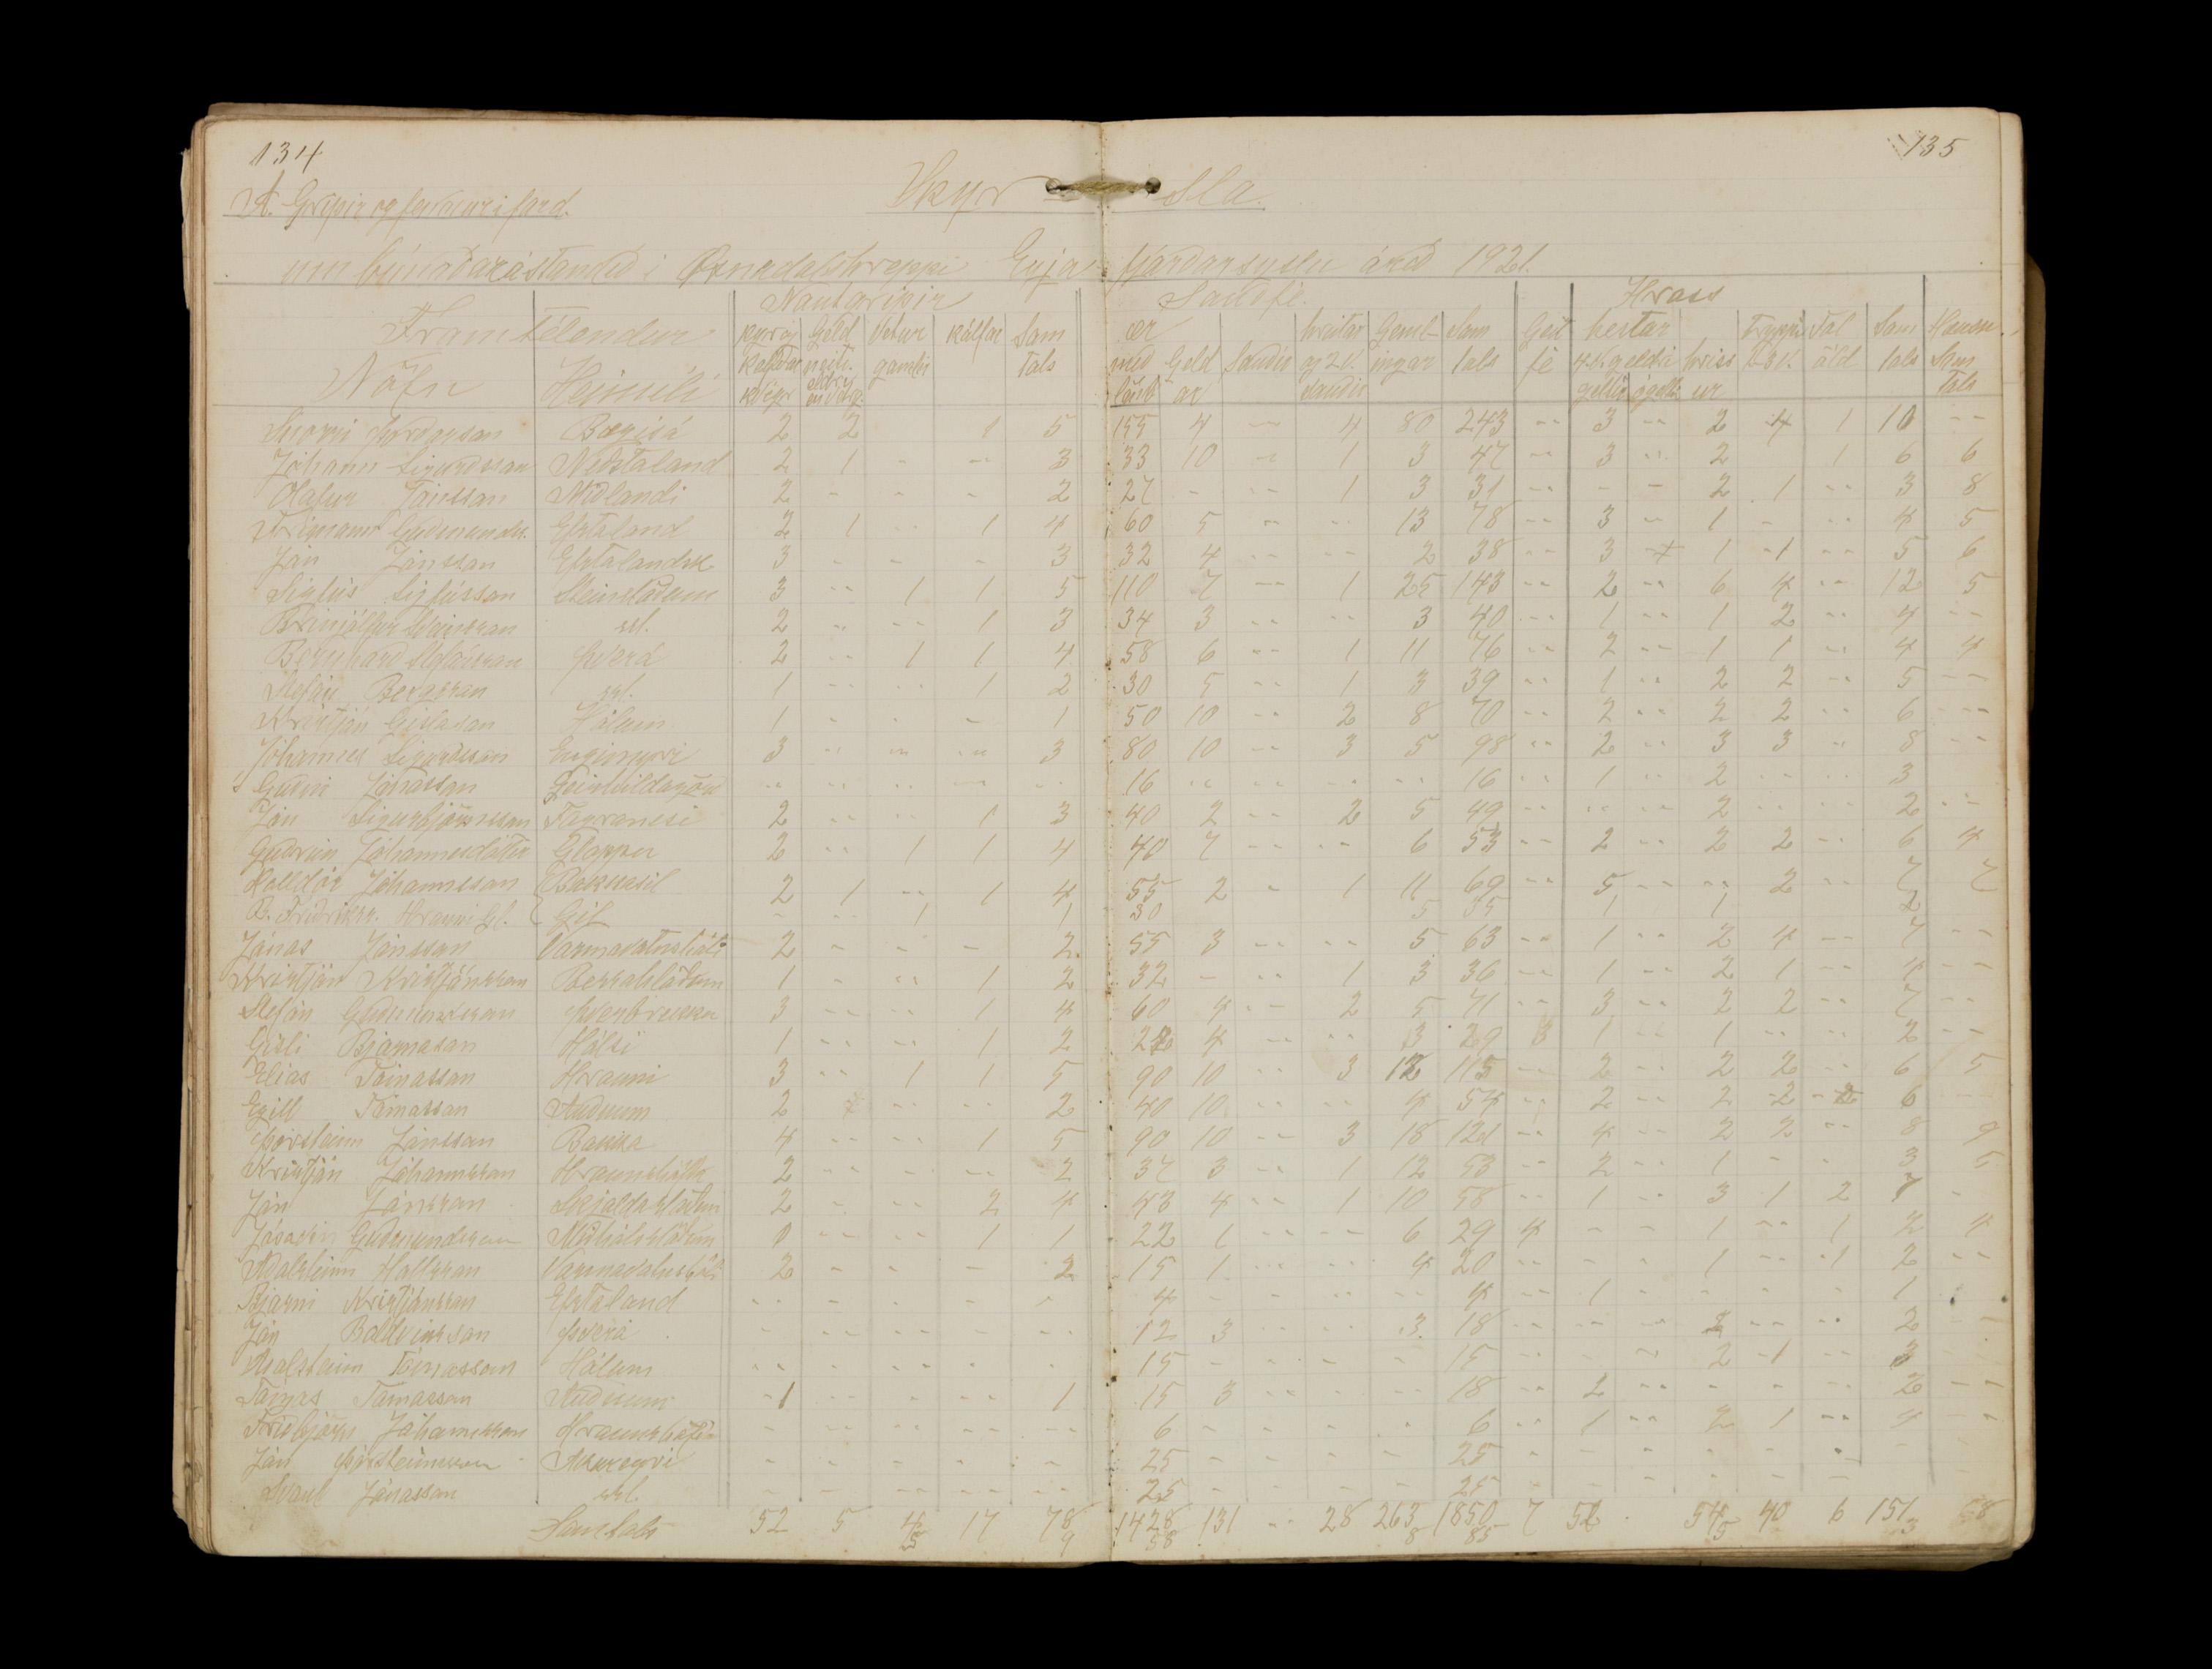 134 135
A. Gripir og fjenaður í fard.
Skýr - sla.
um búnaðarástandið í Öxnadalshreppi Eyjafjarðarsyslu árið 1921.
Framteljendur Nautgripir Sauðfé. Hross
Nöfn Heimili kyr og kelfdar kvígur Geld neiti Vetur gamlir kálfar Sam tals ær með lömb Geld ar Sauðir hrútar og 2 v. sauðir Geml- ingar Sam tals Geit fé hestar hriss ur tryppi 1-3 v. Fol öld Sam tals Hænsn Sam tals
Snorri Þorðarson Bægisá 2 2 1 5 155 4 -- 4 80 243 -- 3 -- 2 4 1 10 --
Jóhann Sigurðsson Neðstaland 2 1 - -- 3 33 10 -- 1 3 47 -- 3 -- 2 1 6 6
Olafur Jónsson Miðlandi 2 - - - 2 27 - -- 1 3 31 -- - - 2 1 -- 3 8
Frímann Guðmundss. Efstaland 2 1 -- 1 4 60 5 -- -- 13 78 -- 3 -- 1 - -- 4 5
Jón Jónsson Efstalandsk 3 - - - 3 32 4 -- -- 2 38 -- 3 1 1 -- 5 6
Sigfús Sigfússon Steinstöðum 3 -- 1 1 5 110 7 -- 1 25 143 -- 2 -- 6 4 -- 12 5
Brinjólfur Sveinsson sst. 2 -- -- 1 3 34 3 -- -- 3 40 -- 1 -- 1 2 -- 4 --
Bernharð Stefánsson Þverá 2 -- 1 1 4 58 6 -- 1 11 76 -- 2 -- 1 1 -- 4 4
Stefán Bergsson sst. 1 -- -- 1 2 30 5 -- 1 3 39 -- 1 -- 2 2 -- 5 --
Kristján Gíslason Hólum 1 - - - 1 50 10 -- 2 8 70 -- 2 -- 2 2 -- 6 --
Jóhannes Sigurðsson Engimyri 3 -- -- -- 3 80 10 -- 3 5 98 -- 2 -- 3 3 -- 8 --
Guðni Jónasson Geirhildagörð -- -- -- -- -- 16 -- -- -- -- 16 -- 1 -- 2 -- -- 3
Jón Sigurbjörnsson Fagranesi 2 -- -- 1 3 40 2 -- 2 5 49 -- -- -- 2 -- -- 2 --
Guðrún Jóhannesdóttir Gloppu 2 -- 1 1 4 40 7 -- -- 6 53 -- 2 -- 2 2 -- 6 4
Halldór Jóhannesson Bakkasel 2 1 -- 1 4 55 2 - 1 11 69 -- 5 -- -- 2 -- 7 7
B. Friðrikss. Hrauni hl. Gil - -- 1 1 30 5 35 1 1 2
Jónas Jónsson Varmavatnshól. 2 - - - 2 55 3 -- -- 5 63 -- 1 -- 2 4 -- 7 --
Kristján Kristjánsson Bessahlöðum 1 - -- 1 2 32 - -- 1 3 36 -- 1 -- 2 1 -- 4 --
Stefán Guðmundsson Þverbrekka 3 -- -- 1 4 60 4 -- 2 5 71 -- 3 -- 2 2 -- 7 --
Gísli Bjarnason Hálsi 1 -- -- 1 2 22 4 -- -- 3 29 3 1 -- 1 -- -- 2 --
Elías Tómasson Hrauni 3 -- 1 1 5 90 10 -- 3 12 115 -- 2 -- 2 2 -- 6 5
Egill Tómasson Auðnum 2 -- -- 2 40 10 -- -- 4 54 -- 2 -- 2 2 6 --
Þorsteinn Jónsson Bakka 4 -- -- 1 5 90 10 -- 3 18 121 -- 4 -- 2 2 -- 8 9
Kristján Jóhannsson Hraunshöfða 2 -- -- -- 2 37 3 -- 1 12 53 -- 2 -- 1 - - 3 5
Jón Jónsson Skjaldarstöðum 2 - -- 2 4 43 4 -- 1 10 58 -- 1 -- 3 1 2 7 -
Jósavin Guðmundsson Miðhálsstöðum 0 -- -- 1 1 22 1 -- -- 6 29 4 - - 1 -- 1 2 4
Aðalsteinn Hallsson Varmavatnshól. 2 - - - 2 15 1 -- -- 4 20 -- - - 1 -- 1 2 --
Bjarni Kristjánsson Efstaland -- - - - - 4 - - -- -- 4 -- 1 - - - - 1
Jón Baldvinsson Þverá - -- -- - -- 12 3 -- -- 3 18 -- -- -- 2 -- -- 2 --
Aðalsteinn Tómasson Hólum -- -- - - - 15 - - - - 15 -- - -- 2 1 -- 3
Tómas Tómasson Auðnum 1 -- - -- 1 15 3 -- - - 18 -- 2 -- - - - 2 --
Friðbjörn Jóhannsson Hraunshöfða - -- -- -- -- 6 - - - - 6 -- 1 -- 2 1 -- 4 --
Jón Þorsteinsson Akureyri - - - - - 25 - - - - 25 - - - - - - -
Svanl Jónasson sst. - - -- -- -- 25 - - - - 25 - - - - - -
Samtals 52 5 4 17 78 1428 131 -- 28 263 1850 7 52 54 40 6 151 68
5 9 58 8 85 5 3